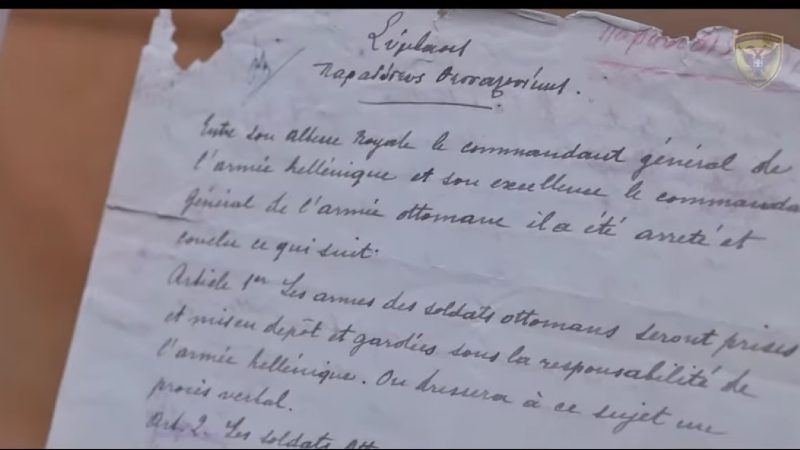 Σύμβασις
Παραδόσεως Θεσσαλονίκης.
Entre Son Altesse Royale le commandant général de
l'armée hellénique et son excellence le commanda
Général de l'armée ottomane il a été arreté et
conclu ce qui suit:
Article 1er Les armes des soldats ottomans seront prises
et mises en depôt et gardées sous la responsabilité de
l'armée hellénique. On dressera à ce sujet un
procès verbal.
Art. 2. Les soldats Ott